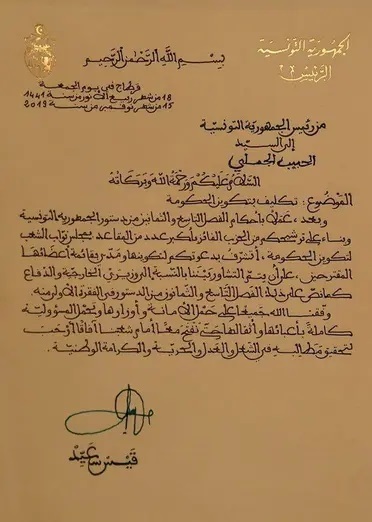 الجمهورية التونسية
الرئيس
بسم الله الرحمن الرحيم
قرطاج في يوم الجمعة
18 من شهر ربيع الأنور من سنة 1441
15 من شهر نوفمبر من سنة 2019
من رئيس الجمهورية التونسية
إلى السيد
الحبيب الجملي
السلام عليكم ورحمة الله وبركاته
الموضوع : تكليف بتكوين الحكومة
وبعد، عملا بأحكام الفصل التاسع والثمانين من دستور الجمهورية التونسية
وبناء على ترشحكم من الحزب الفائز بأكبر عدد من المقاعد بمجلس نواب الشعب
لتكوين الحكومة، أتشرف بدعوتكم لتكوينها ومدي بقائمة أعضائها
المقترحين، على أن يتم التشاور بيننا بالنسبة إلى وزيري الخارجية والدفاع
كما نص على ذلك الفصل التاسع والثمانون من الدستور في الفقرة الأولى منه.
وفقنا الله جميعا على حمل الأمانة وأوزارها وتحمل المسؤولية
كاملة بأعبائها وأثقالها حتى نفتح معا أمام شعبنا آفاقا أرحب
لتحقيق مطالبه في الشغل والعدل والحرية والكرامة الوطنية.
قيس سعيد